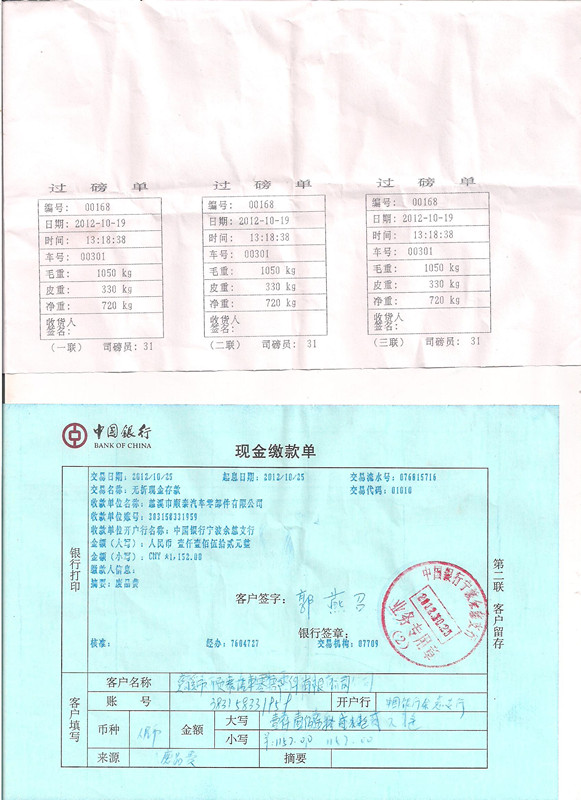 过 磅 单
编号: 00168
日期: 2012-10-19
时间: 13:18:38
车号: 00301
毛重: 1050 kg
皮重: 330 kg
净重: 720 kg
收货人
签名:
(一联) 司磅员: 31
过 磅 单
编号: 00168
日期: 2012-10-19
时间: 13:18:38
车号: 00301
毛重: 1050 kg
皮重: 330 kg
净重: 720 kg
收货人
签名:
(二联) 司磅员: 31
过 磅 单
编号: 00168
日期: 2012-10-19
时间: 13:18:38
车号: 00301
毛重: 1050 kg
皮重: 330 kg
净重: 720 kg
收货人
签名:
(三联) 司磅员: 31
中国银行
BANK OF CHINA
现金缴款单
交易日期: 2012/10/25 起息日期: 2012/10/25 交易流水号: 076815716
交易名称: 无折现金存款 交易代码: 01010
收款单位名称: 慈溪市顺泰汽车零部件有限公司
收款单位账号: 383158331959
收款单位开户行名称: 中国银行宁波余慈支行
金额(大写): 人民币 壹仟壹佰伍拾贰元整
金额(小写): CNY *1,152.00
缴款人信息:
摘要: 废品费
银行打印
客户签字: 郭燕君
银行签章:
核准: 经办: 7604727 交易机构: 07709
第二联 客户留存
中国银行宁波余慈支行
2012.10.25
业务专用章
(2)
客户填写
客户名称 慈溪市顺泰汽车零部件有限公司
账号 383158331959 开户行
币种 金额 大写
小写 1152.00
来源 废品费 摘要